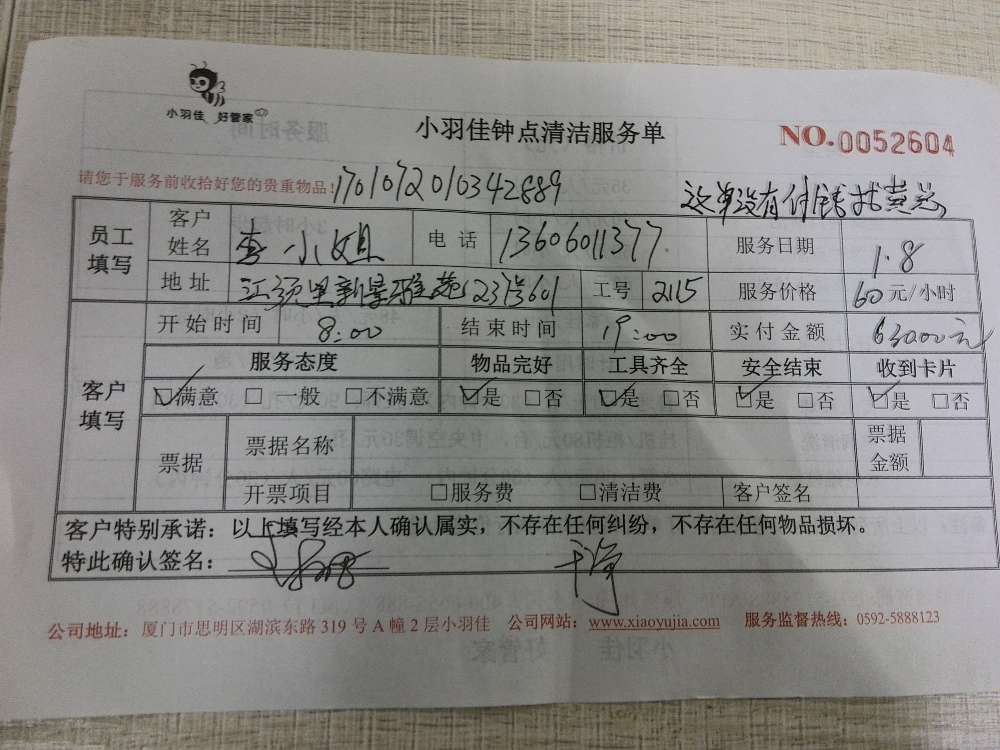 小羽佳 好管家
小羽佳钟点清洁服务单
NO.0052604
请您于服务前收拾好您的贵重物品!
170107201034288​9
这单没有付钱找黄总
员工填写
客户姓名 李小姐 电话 13606011377 服务日期 1.8
地址 江头里新景雅苑123号601 工号 2115 服务价格 60元/小时
客户填写
开始时间 8:00 结束时间 19:00 实付金额 630.00元
服务态度 物品完好 工具齐全 安全结束 收到卡片
☑满意 □一般 □不满意 ☑是 □否 ☑是 □否 ☑是 □否 ☑是 □否
票据 票据名称 票据金额
开票项目 □服务费 □清洁费 客户签名
客户特别承诺:以上填写经本人确认属实,不存在任何纠纷,不存在任何物品损坏。
特此确认签名: 干净
公司地址:厦门市思明区湖滨东路319号A幢2层小羽佳 公司网站:www.xiaoyujia.com 服务监督热线:0592-5888123